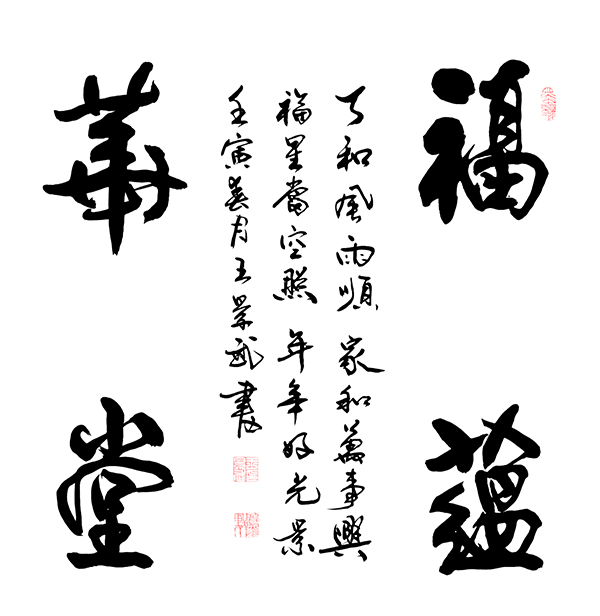 福蘊
天和風雨順 家和萬事興
福星當空照 年年好光景
壬寅春月王景書
華堂